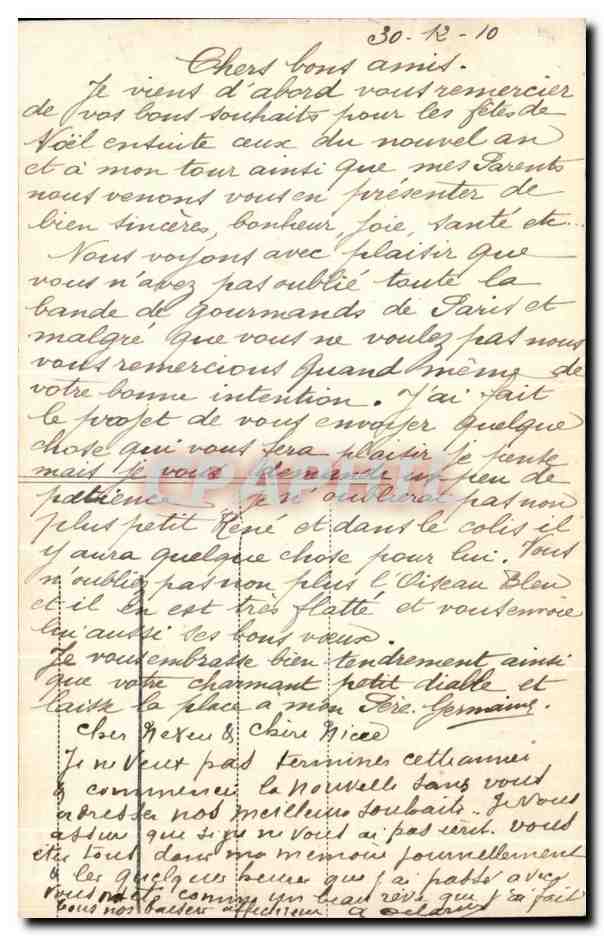 30-12-10
Chers bons amis.
Je viens d'abord vous remercier
de vos bons souhaits pour les fêtes de
Noël ensuite ceux du nouvel an
et à mon tour ainsi que mes Parents
nous venons vous en présenter de
bien sincères, bonheur, joie, santé etc...
Nous voyons avec plaisir que
vous n'avez pas oublié toute la
bande de gourmands de Paris et
malgré que vous ne voulez pas nous
vous remercions quand même de
votre bonne intention. J'ai fait
le projet de vous envoyer quelque
chose qui vous fera plaisir je pense
mais je vous demande un peu de
patience je n'oublierai pas non
plus petit René et dans le colis il
y aura quelque chose pour lui. Vous
n'oubliez pas non plus l'Oiseau Bleu
et il en est très flatté et vous envoie
lui aussi ses bons vœux.
Je vous embrasse bien tendrement ainsi
que votre charmant petit diable et
laisse la place à mon Père. Germaine.
Cher Neveu & Chère Nièce
Je ne veux pas terminer cette année
& commencer la nouvelle sans vous
adresser nos meilleurs souhaits. Je vous
assure que si je ne vous ai pas écrit vous
êtes tous dans ma mémoire journellement
& les quelques heures que j'ai passé avec
vous comme un beau rêve que j'ai fait
tous nos baisers affectueux
CPARAMA